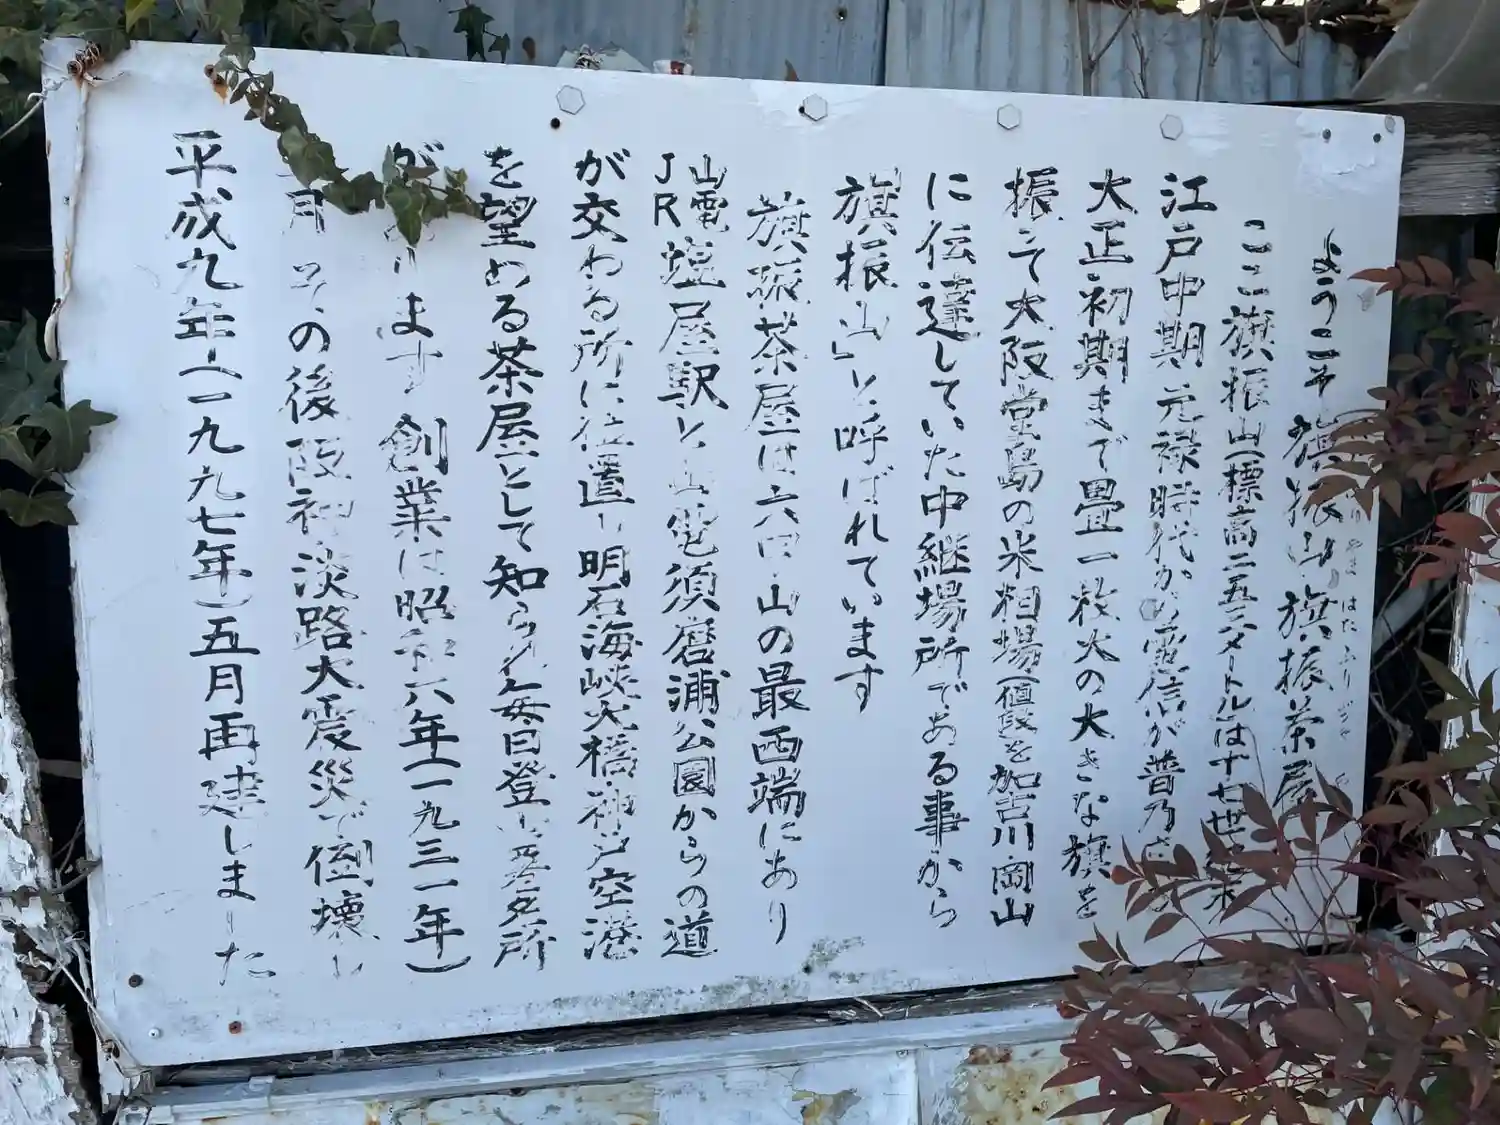 ようこそ 旗振山 旗振茶屋
ここ旗振山(標高二五三メートル)は十七世紀末
江戸中期元禄時代から電信が普及
大正初期まで畳一枚大の大きな旗を
振って大阪堂島の米相場(値段)を加古川岡山
に伝達していた中継場所である事から
旗振山」と呼ばれています
旗振茶屋は六甲山の最西端にあり
JR塩屋駅と山電須磨浦公園からの道
山電
が交わる所に位置し明石海峡大橋・神戸空港
を望める茶屋として知られ毎日登山署名所
があります 創業は昭和六年(一九三一年)
月 その後阪神淡路大震災で倒壊し
平成九年(一九九七年)五月再建しました